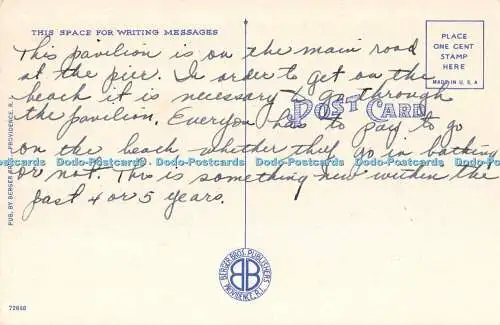 THIS SPACE FOR WRITING MESSAGES
PLACE
ONE CENT
STAMP
HERE
MADE IN U.S.A
This pavilion is on the main road
at the pier. In order to get on the
beach it is necessary to go through
POST CARD
the pavilion. Everyon has to pay to go
on the beach whether they go in bathing
or not. This is something new within the
past 4 or 5 years.
Dodo-Postcards Dodo-Postcards Dodo-Postcards Dodo-Postcards Dodo-Postcards Dodo-Postcards
PUB. BY BERGER BROS., PROVIDENCE, R.I.
BERGER BROS. PUBLISHERS
BB
PROVIDENCE, R.I.
72848